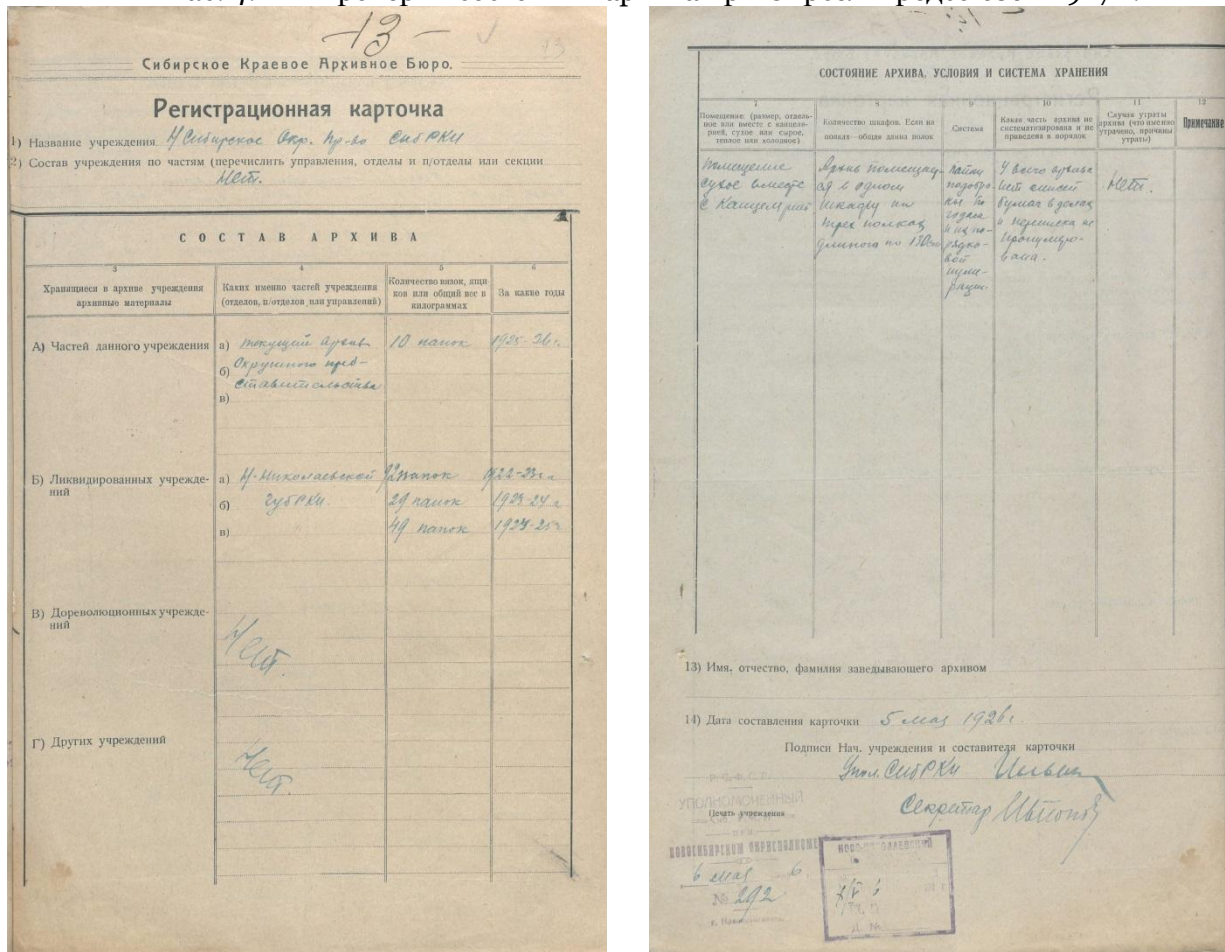 -13-
Сибирское Краевое Архивное Бюро.
Регистрационная карточка
1) Название учреждения Н.Сибирское Окр. пр-во СибРКИ
2) Состав учреждения по частям (перечислить управления, отделы и п/отделы или секции
Нет.
СОСТАВ АРХИВА
3
Хранящиеся в архиве учреждения
архивные материалы
4
Каких именно частей учреждения
(отделов, п/отделов или управлений)
5
Количество вязок, ящи-
ков или общий вес в
килограммах
6
За какие годы
А) Частей данного учреждения
а) текущий архив
б) Окружного пред-
ставительства
в)
10 папок
1925-26 г.
Б) Ликвидированных учрежде-
ний
а) Н-Николаевской
б) ГубРКИ.
в)
папок
29 папок
49 папок
1922-23 г.
1923-24 г.
1924-25 г.
В) Дореволюционных учрежде-
ний
Нет.
Г) Других учреждений
Нет.
СОСТОЯНИЕ АРХИВА, УСЛОВИЯ И СИСТЕМА ХРАНЕНИЯ
7
Помещение: (размер, отдель-
ное или вместе с канцеля-
рией, сухое или сырое,
теплое или холодное)
8
Количество шкафов. Если на
полках—общая длина полок
9
Система
10
Какая часть архива не
систематизирована и не
приведена в порядок
11
Случаи утраты
архива (что именно
утрачено, причины
утраты)
12
Примечание
Помещение
сухое вместе
с канцелярией
Архив помещает-
ся в одном
шкафу на
трех полках
длиною по
папки
подобра-
ны по
годам
и по по-
рядко-
вой
нуме-
рации.
У всего архива
нет описей
бумаг в делах
и переписка не
пронумеро-
вана.
Нет.
13) Имя, отчество, фамилия заведывающего архивом
14) Дата составления карточки 5 мая 1926 г.
Подписи Нач. учреждения и составителя карточки
Упол. СибРКИ
Секретарь
Р.С.Ф.С.Р.
УПОЛНОМОЧЕННЫЙ
Печать учреждения
при
НОВОСИБИРСКОМ ОКРИСПОЛКОМЕ
6 мая 6
№ 292